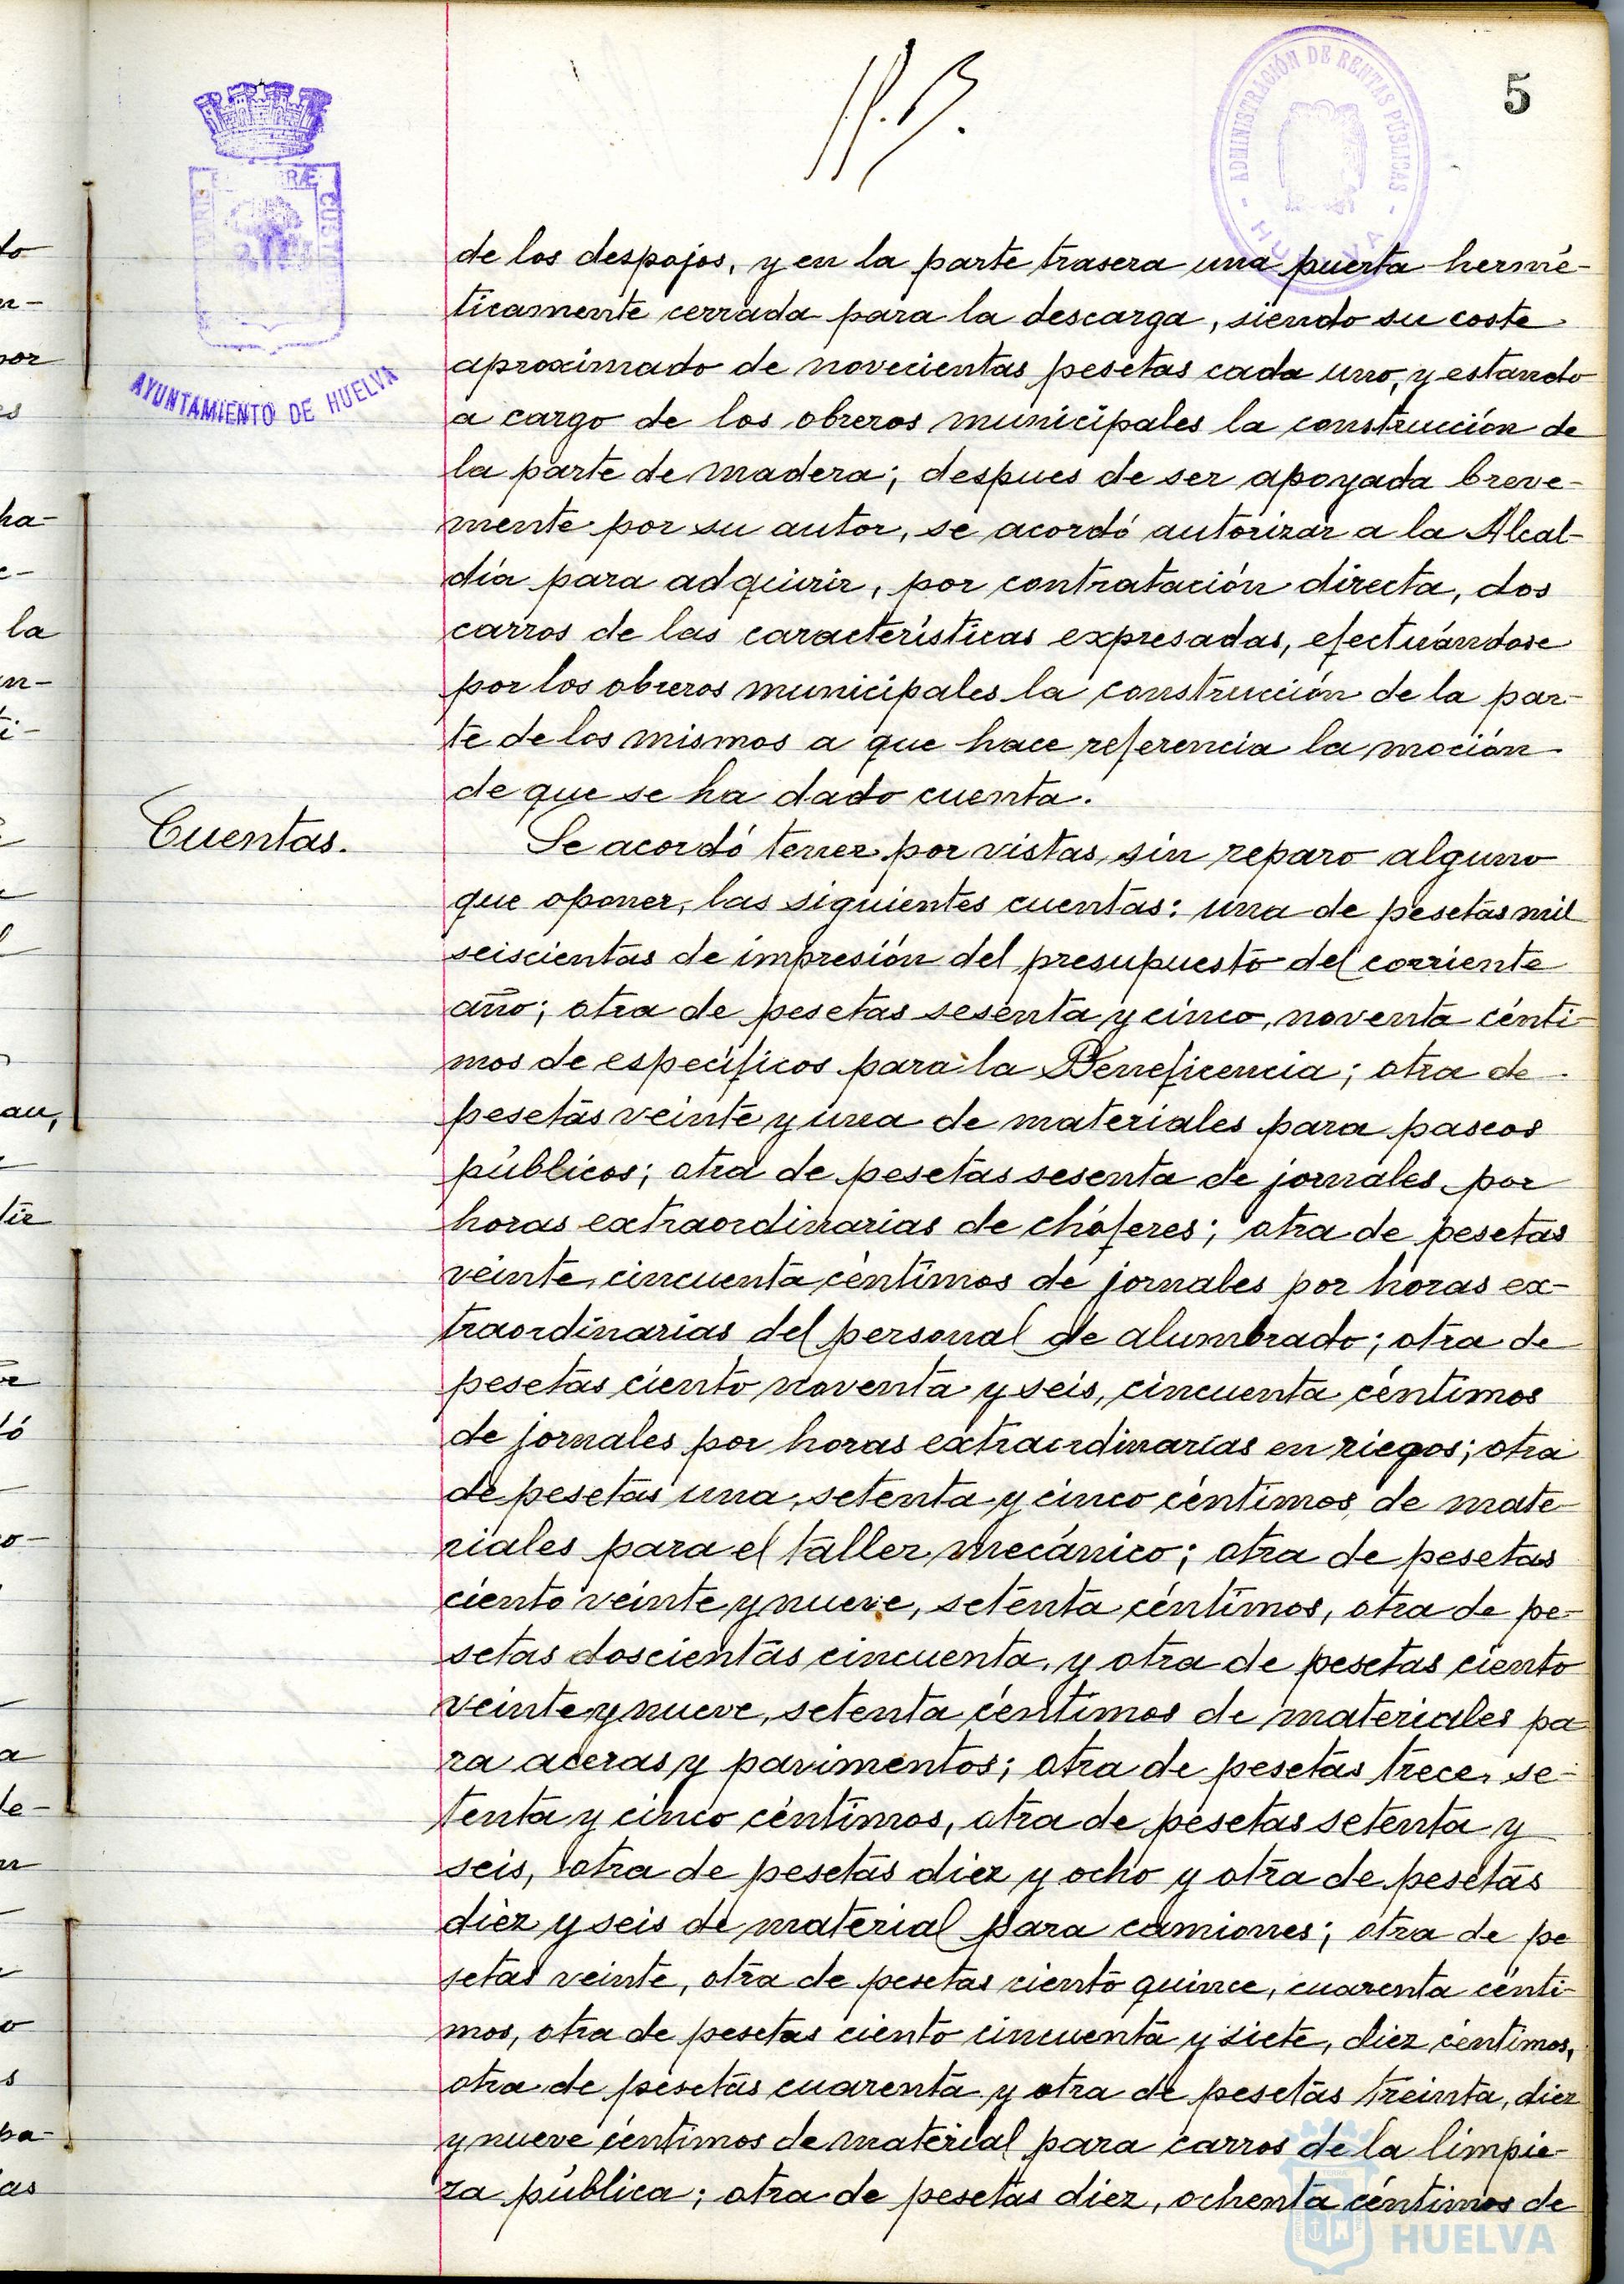 5
ADMINISTRACIÓN DE RENTAS PÚBLICAS
HUELVA
AYUNTAMIENTO DE HUELVA
de los despojos, y en la parte trasera una puerta hermé-
ticamente cerrada para la descarga, siendo su coste
aproximado de novecientas pesetas cada uno, y estando
a cargo de los obreros municipales la construcción de
la parte de madera; despues de ser apoyada breve-
mente por su autor, se acordó autorizar a la Alcal-
día para adquirir, por contratación directa, dos
carros de las características expresadas, efectuándose
por los obreros municipales la construcción de la par-
te de los mismos a que hace referencia la moción
de que se ha dado cuenta.
Cuentas.
Se acordó tener por vistas, sin reparo alguno
que oponer, las siguientes cuentas: una de pesetas mil
seiscientas de impresión del presupuesto del corriente
año; otra de pesetas sesenta y cinco, noventa cénti-
mos de específicos para la Beneficencia; otra de
pesetas veinte y una de materiales para paseos
públicos; otra de pesetas sesenta de jornales por
horas extraordinarias de chóferes; otra de pesetas
veinte, cincuenta céntimos de jornales por horas ex-
traordinarias del personal de alumbrado; otra de
pesetas ciento noventa y seis, cincuenta céntimos
de jornales por horas extraordinarias en riegos; otra
de pesetas una, setenta y cinco céntimos, de mate-
riales para el taller mecánico; otra de pesetas
ciento veinte y nueve, setenta céntimos, otra de pe-
setas doscientas cincuenta, y otra de pesetas ciento
veinte y nueve, setenta céntimos de materiales pa
ra aceras y pavimentos; otra de pesetas trece, se-
tenta y cinco céntimos, otra de pesetas setenta y
seis, otra de pesetas diez y ocho y otra de pesetas
diez y seis de material para camiones; otra de pe
setas veinte, otra de pesetas ciento quince, cuarenta cénti-
mos, otra de pesetas ciento cincuenta y siete, diez céntimos,
otra de pesetas cuarenta y otra de pesetas treinta, diez
y nueve céntimos de material para carros de la limpie-
za pública; otra de pesetas diez, ochenta céntimos de
HUELVA